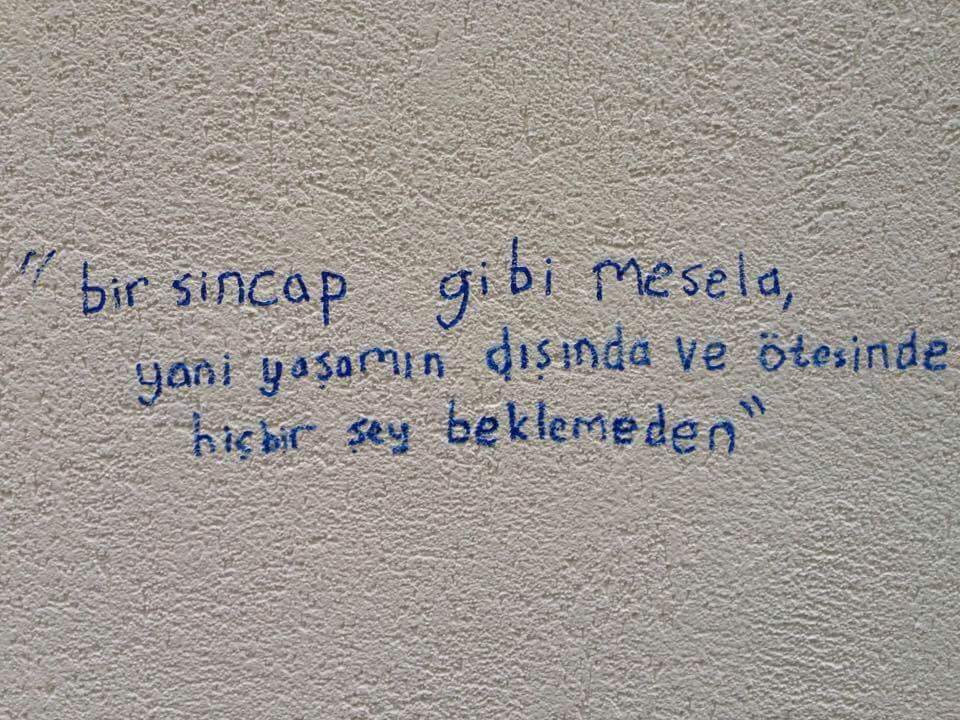 "bir sincap gibi mesela,
yani yaşamın dışında ve ötesinde
hiçbir şey beklemeden"